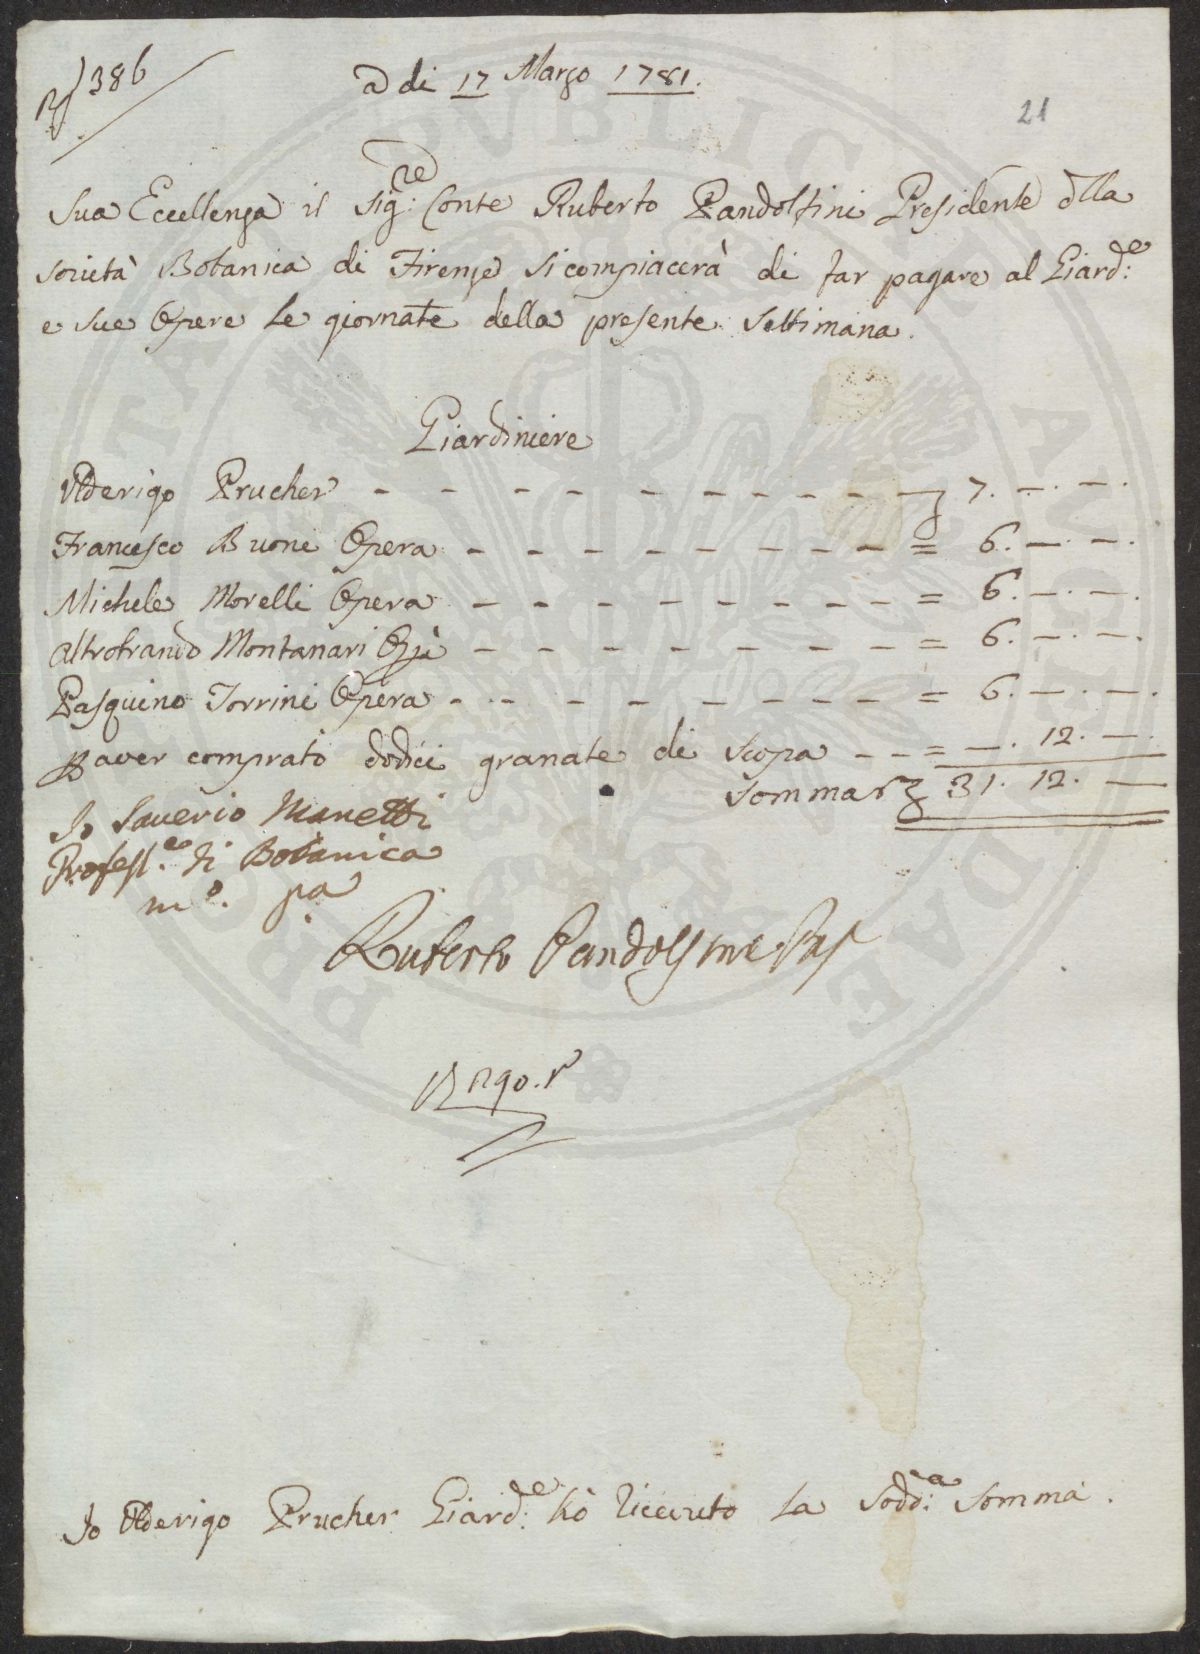 386
a di 17 Marzo 1781.
21
Sua Eccellenza il Sig:re Conte Ruberto Pandolfini Presidente dlla
società Botanica di Firenze si compiacerà di far pagare al Giard:e
e sue Opere le giornate della presente Settimana.
Giardiniere
Ulderigo Prucher - - - - - - - - - 7. —. —.
Francesco Buoni Opera - - - - - - - - = 6. —. —.
Michele Morelli Opera - - - - - - - - = 6. —. —.
Altrobrando Montanari Opà - - - - - - - = 6. —. —.
Pasquino Torrini Opera - - - - - - - - = 6. —. —.
P aver comprato dodici granate di scopa - - = —. 12. —.
Sommar 31. 12. —
Io Saverio Manetti
Profess.e di Botanica
m.o pa
Ruberto Pandolfini Pres
Io Ulderigo Prucher Giard:e hò riceuto la sodd:a somma.